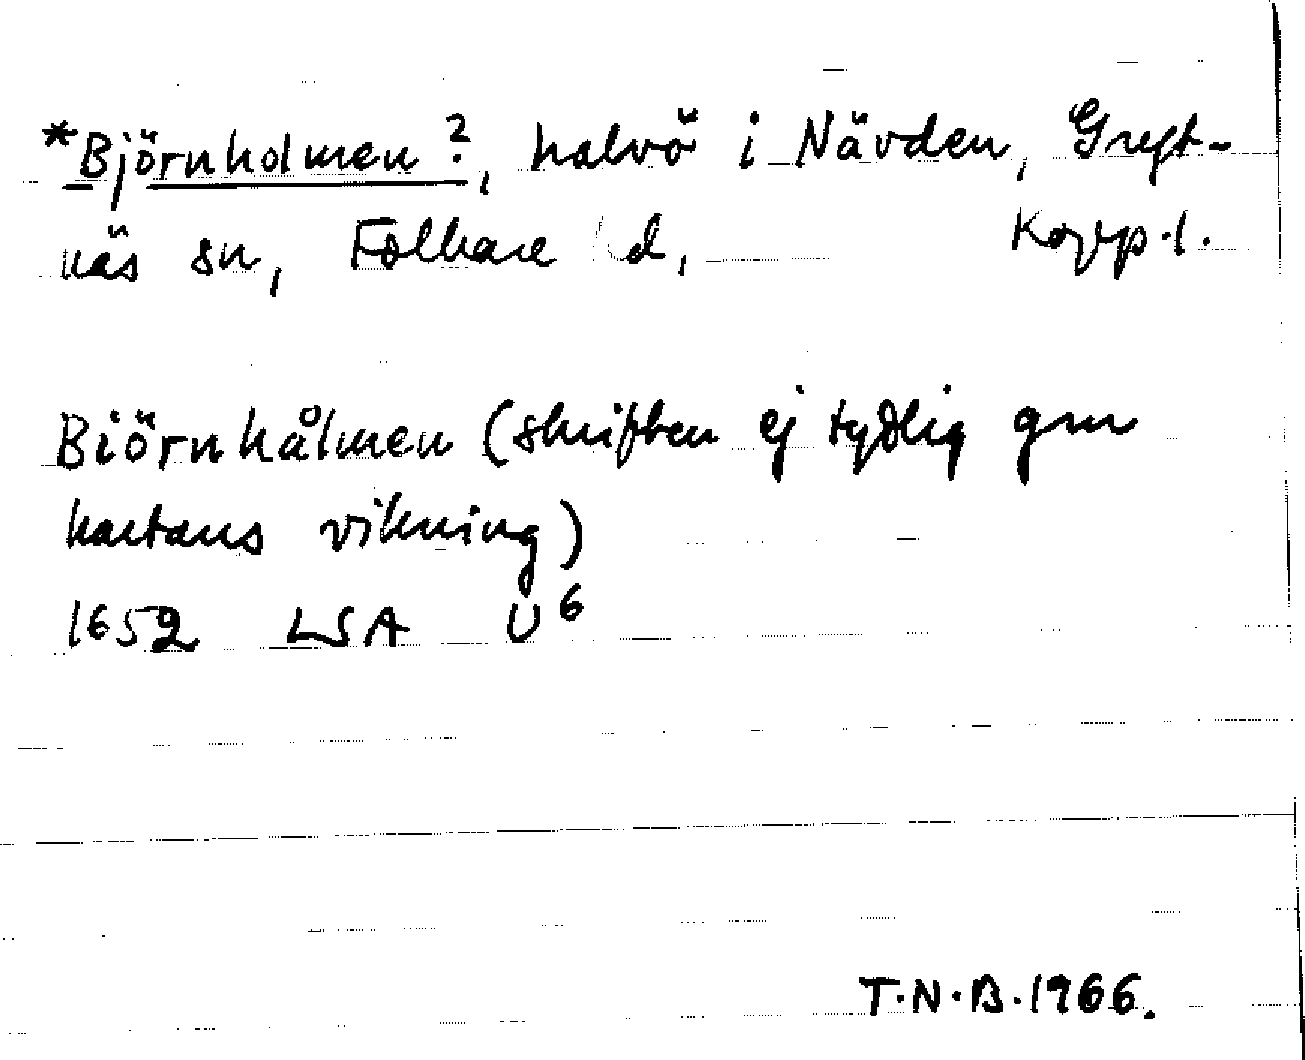 *Björnholmen?, halvö i Nävden, Gryt-
näs sn, Folkare hd, Kopp.l.
Biörnhålmen (skriften ej tydlig gm
kartans vikning)
1652 LSA U6
T.N.B.1966.